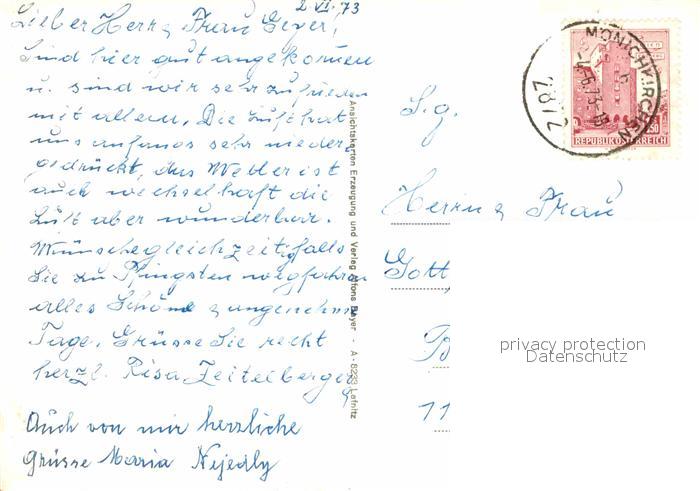 2. VI. 73
Lieber Herr u Frau Geyer,
Sind hier gut angekommen
u. sind wir sehr zufrieden
mit allem. Die Luft hat
uns anfangs sehr nieder
gedrückt, das Wetter ist
auch wechselhaft die
Luft aber wunderbar.
Wünsche gleichzeitig falls
Sie zu Pfingsten wegfahren
alles Schöne u angenehme
Tage. Grüsse Sie recht
herzl. Risa Zeitelberger
Auch von mir herzliche
Grüsse Maria Nejedly
Ansichtskarten Erzeugung und Verlag Alfons Bayer - A-8233 Lafnitz
MÖNICHKIRCHEN
-4.-6.73-
2872
REPUBLIK ÖSTERREICH
S.g.
Herrn u Frau
Gott
B
11
privacy protection
Datenschutz